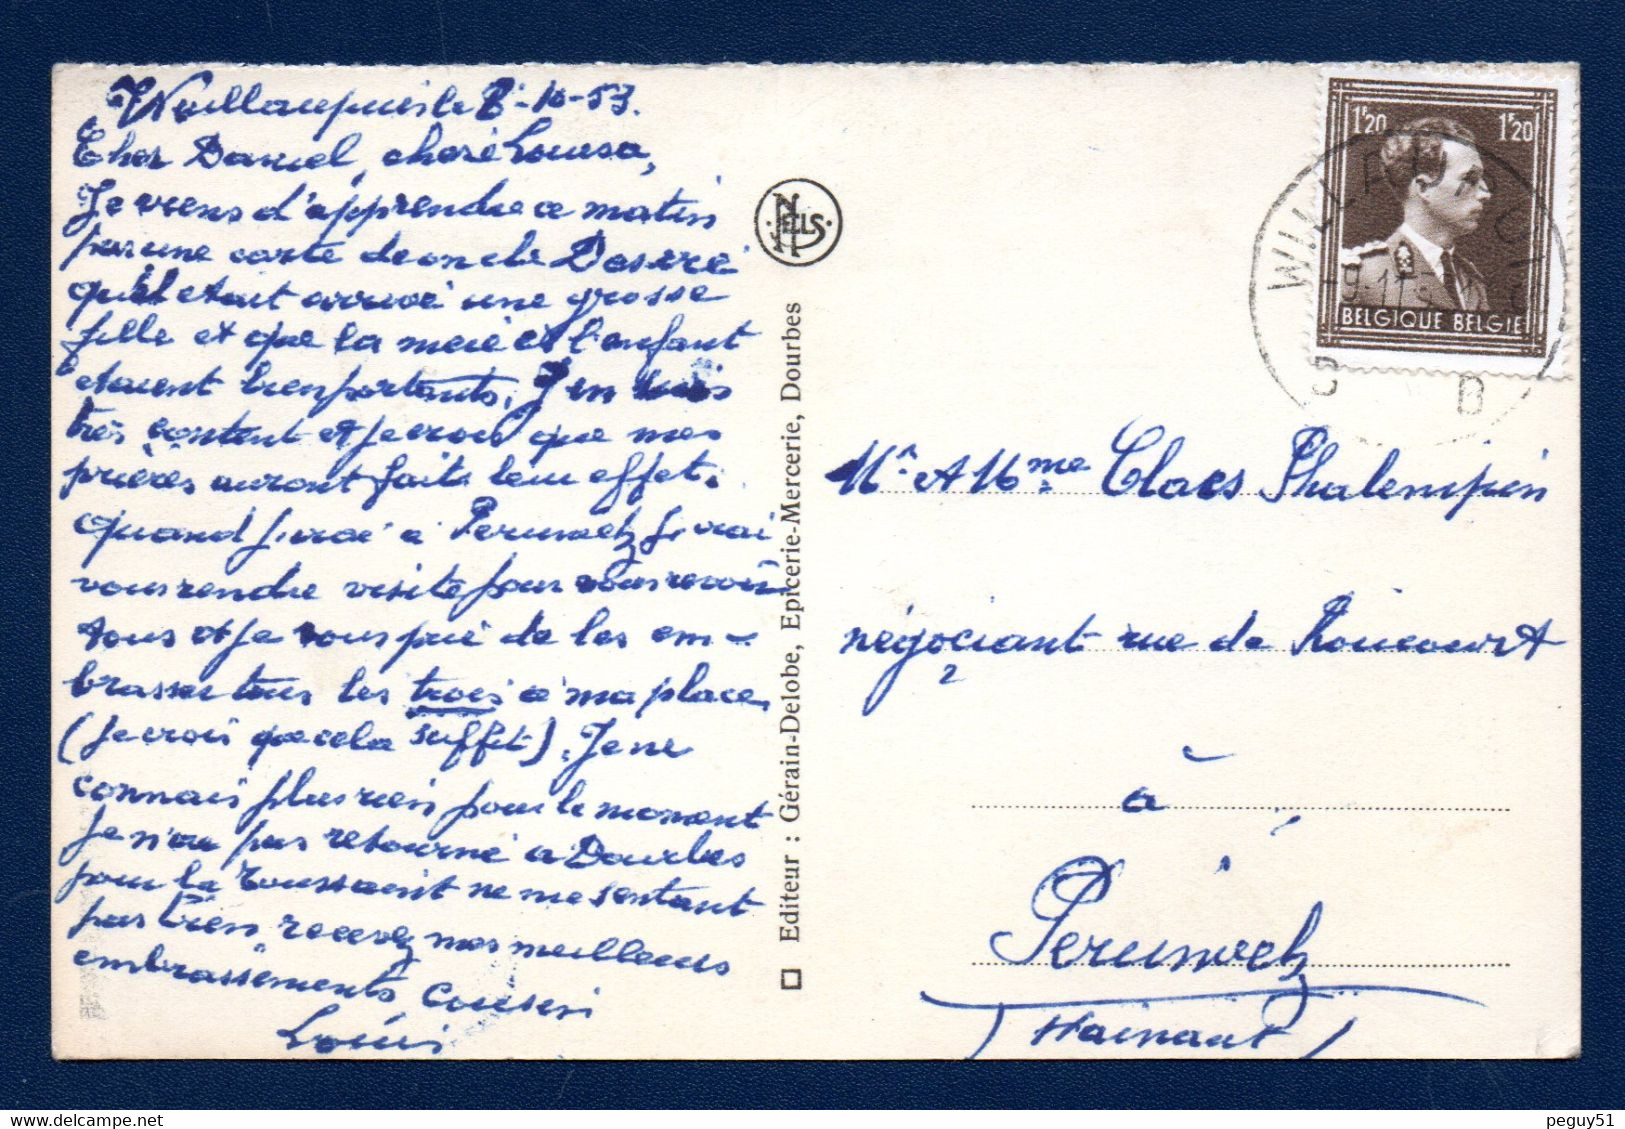 Willaupuis le 8-10-53.
Cher Daniel, chère Louisa,
Je viens d'apprendre ce matin
par une carte de oncle Desiré
qu'il etait arrivé une grosse
fille et que la mère et l'enfant
etaient bien portants. J'en suis
très content et je crois que mes
prières auront faits leur effet.
quand j'irai à Peruwelz j'irai
vous rendre visite pour vous revoir
tous et je vous prie de les em-
brasser tous les trois a ma place
(je crois que cela suffit). Je ne
connais plus rien pour le moment
je n'ai pas retourné a Dourbes
pour la Toussaint ne me sentant
pas bien recevez mes meilleurs
embrassements cousin
Louis
NELS
Editeur : Gérain-Delobe, Epicerie-Mercerie, Dourbes
1F20 1F20
BELGIQUE BELGIE
WILLAUPUIS
-9-11-5
B B
Mr et Mme Claes Phalempin
négociant rue de Roucourt
2
à
Péruwelz
(Hainaut)
peguy51